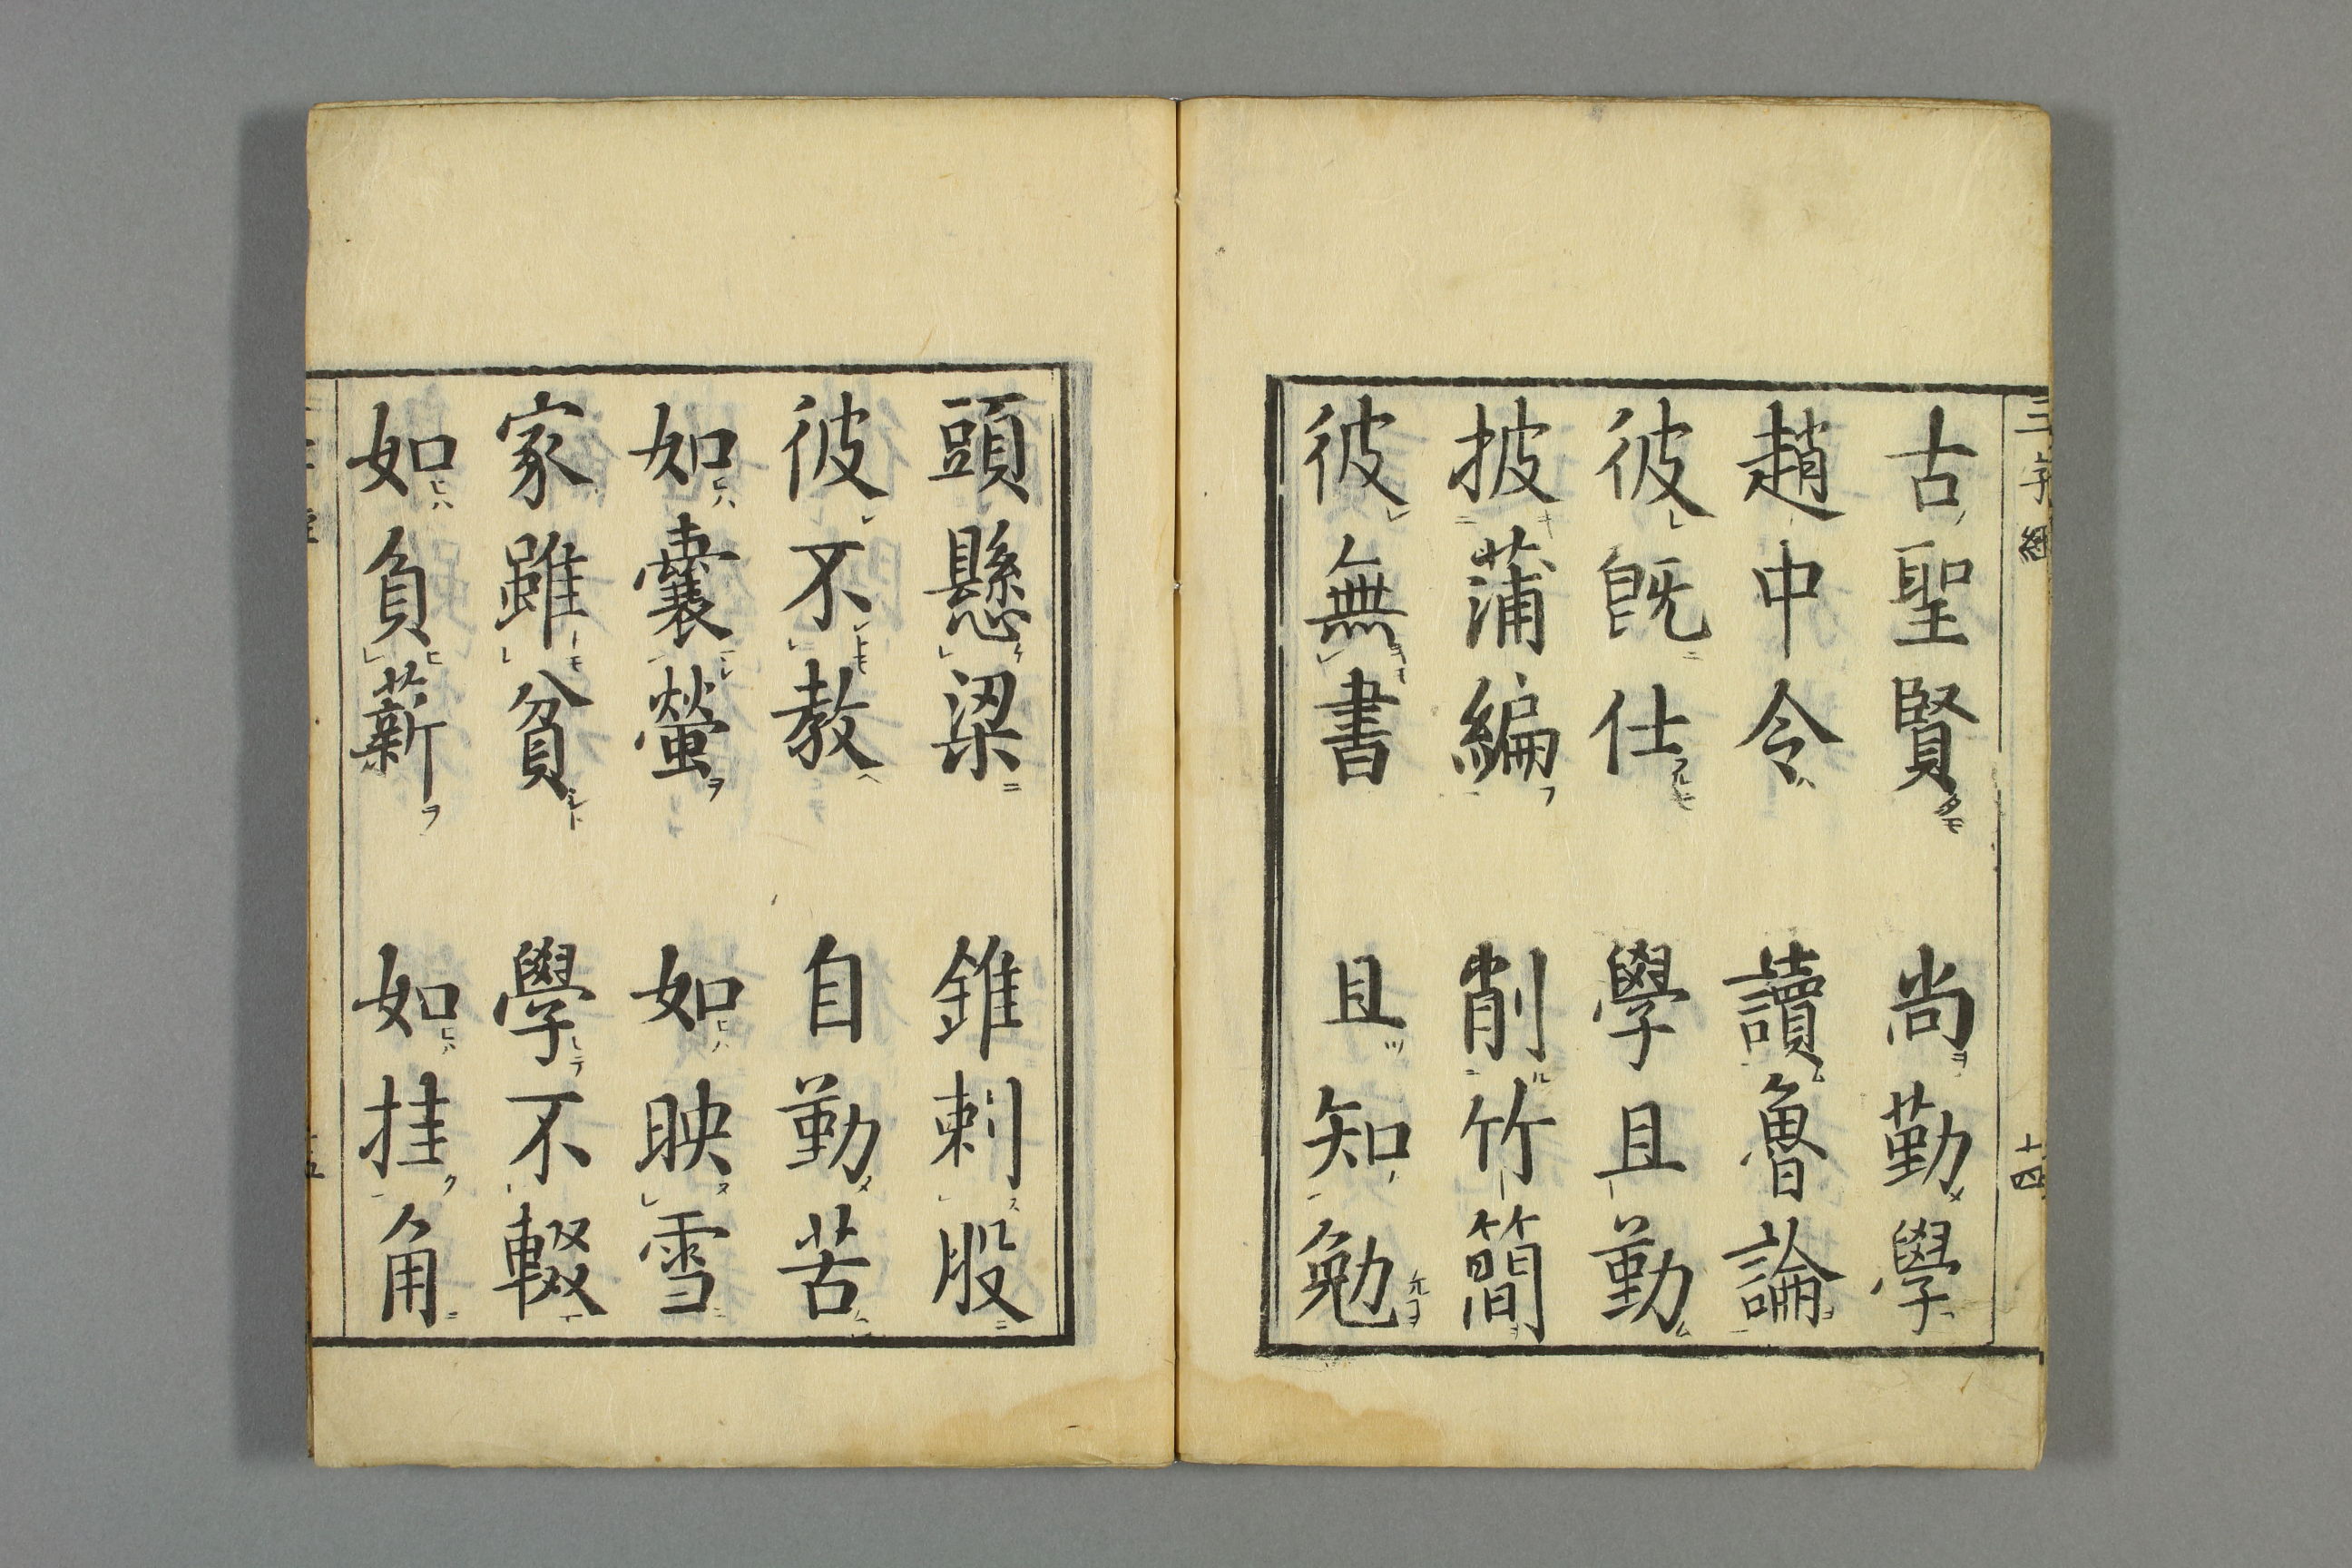 三字經
十四
古聖賢 尚勤學
趙中令 讀魯論
彼既仕 學且勤
披蒲編 削竹簡
彼無書 且知勉
頭懸梁 錐刺股
彼不教 自勤苦
如囊螢 如映雪
家雖貧 學不輟
如負薪 如挂角